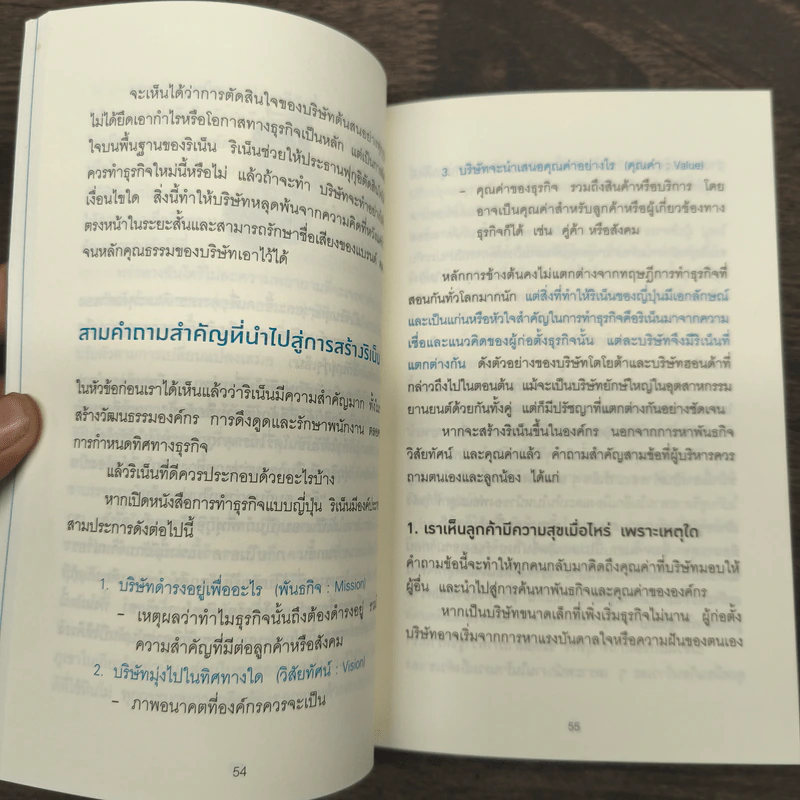 จะเห็นได้ว่าการตัดสินใจของบริษัทต้นสนอย่าง
ไม่ได้ยึดเอากำไรหรือโอกาสทางธุรกิจเป็นหลัก แต่เป็นการ
ใจบนพื้นฐานของริเน็น ริเน็นช่วยให้ประธานฟุกุอิตัดสินใจ
ควรทำธุรกิจใหม่นี้หรือไม่ แล้วถ้าจะทำ บริษัทจะทำอย่างไร
เงื่อนไขใด สิ่งนี้ทำให้บริษัทหลุดพ้นจากความคิดที่หวัง
ตรงหน้าในระยะสั้นและสามารถรักษาชื่อเสียงของแบรนด์
จนหลักคุณธรรมของบริษัทเอาไว้ได้
สามคำถามสำคัญที่นำไปสู่การสร้างริเน็น
ในหัวข้อก่อนเราได้เห็นแล้วว่าริเน็นมีความสำคัญมาก
สร้างวัฒนธรรมองค์กร การดึงดูดและรักษาพนักงาน
การกำหนดทิศทางธุรกิจ
แล้วริเน็นที่ดีควรประกอบด้วยอะไรบ้าง
หากเปิดหนังสือการทำธุรกิจแบบญี่ปุ่น ริเน็นมีองค์ประกอบ
สามประการดังต่อไปนี้
1. บริษัทดำรงอยู่เพื่ออะไร (พันธกิจ : Mission)
– เหตุผลว่าทำไมธุรกิจนั้นถึงต้องดำรงอยู่
ความสำคัญที่มีต่อลูกค้าหรือสังคม
2. บริษัทมุ่งไปในทิศทางใด (วิสัยทัศน์ : Vision)
– ภาพอนาคตที่องค์กรควรจะเป็น
54
3. บริษัทจะนำเสนอคุณค่าอย่างไร (คุณค่า : Value)
– คุณค่าของธุรกิจ รวมถึงสินค้าหรือบริการ โดย
อาจเป็นคุณค่าสำหรับลูกค้าหรือผู้เกี่ยวข้องทาง
ธุรกิจก็ได้ เช่น คู่ค้า หรือสังคม
หลักการข้างต้นคงไม่แตกต่างจากทฤษฎีการทำธุรกิจที่
สอนกันทั่วโลกมากนัก แต่สิ่งที่ทำให้ริเน็นของญี่ปุ่นมีเอกลักษณ์
และเป็นแก่นหรือหัวใจสำคัญในการทำธุรกิจคือริเน็นมาจากความ
เชื่อและแนวคิดของผู้ก่อตั้งธุรกิจนั้น แต่ละบริษัทจึงมีริเน็นที่
แตกต่างกัน ดังตัวอย่างของบริษัทโตโยต้าและบริษัทฮอนด้าที่
กล่าวถึงไปในตอนต้น แม้จะเป็นบริษัทยักษ์ใหญ่ในอุตสาหกรรม
ยานยนต์ด้วยกันทั้งคู่ แต่ก็มีปรัชญาที่แตกต่างกันอย่างชัดเจน
หากจะสร้างริเน็นขึ้นในองค์กร นอกจากการหาพันธกิจ
วิสัยทัศน์ และคุณค่าแล้ว คำถามสำคัญสามข้อที่ผู้บริหารควร
ถามตนเองและลูกน้อง ได้แก่
1. เราเห็นลูกค้ามีความสุขเมื่อไหร่ เพราะเหตุใด
คำถามข้อนี้จะทำให้ทุกคนกลับมาคิดถึงคุณค่าที่บริษัทมอบให้
ผู้อื่น และนำไปสู่การค้นหาพันธกิจและคุณค่าขององค์กร
หากเป็นบริษัทขนาดเล็กที่เพิ่งเริ่มธุรกิจไม่นาน ผู้ก่อตั้ง
บริษัทอาจเริ่มจากการหาแรงบันดาลใจหรือความฝันของตนเอง
55